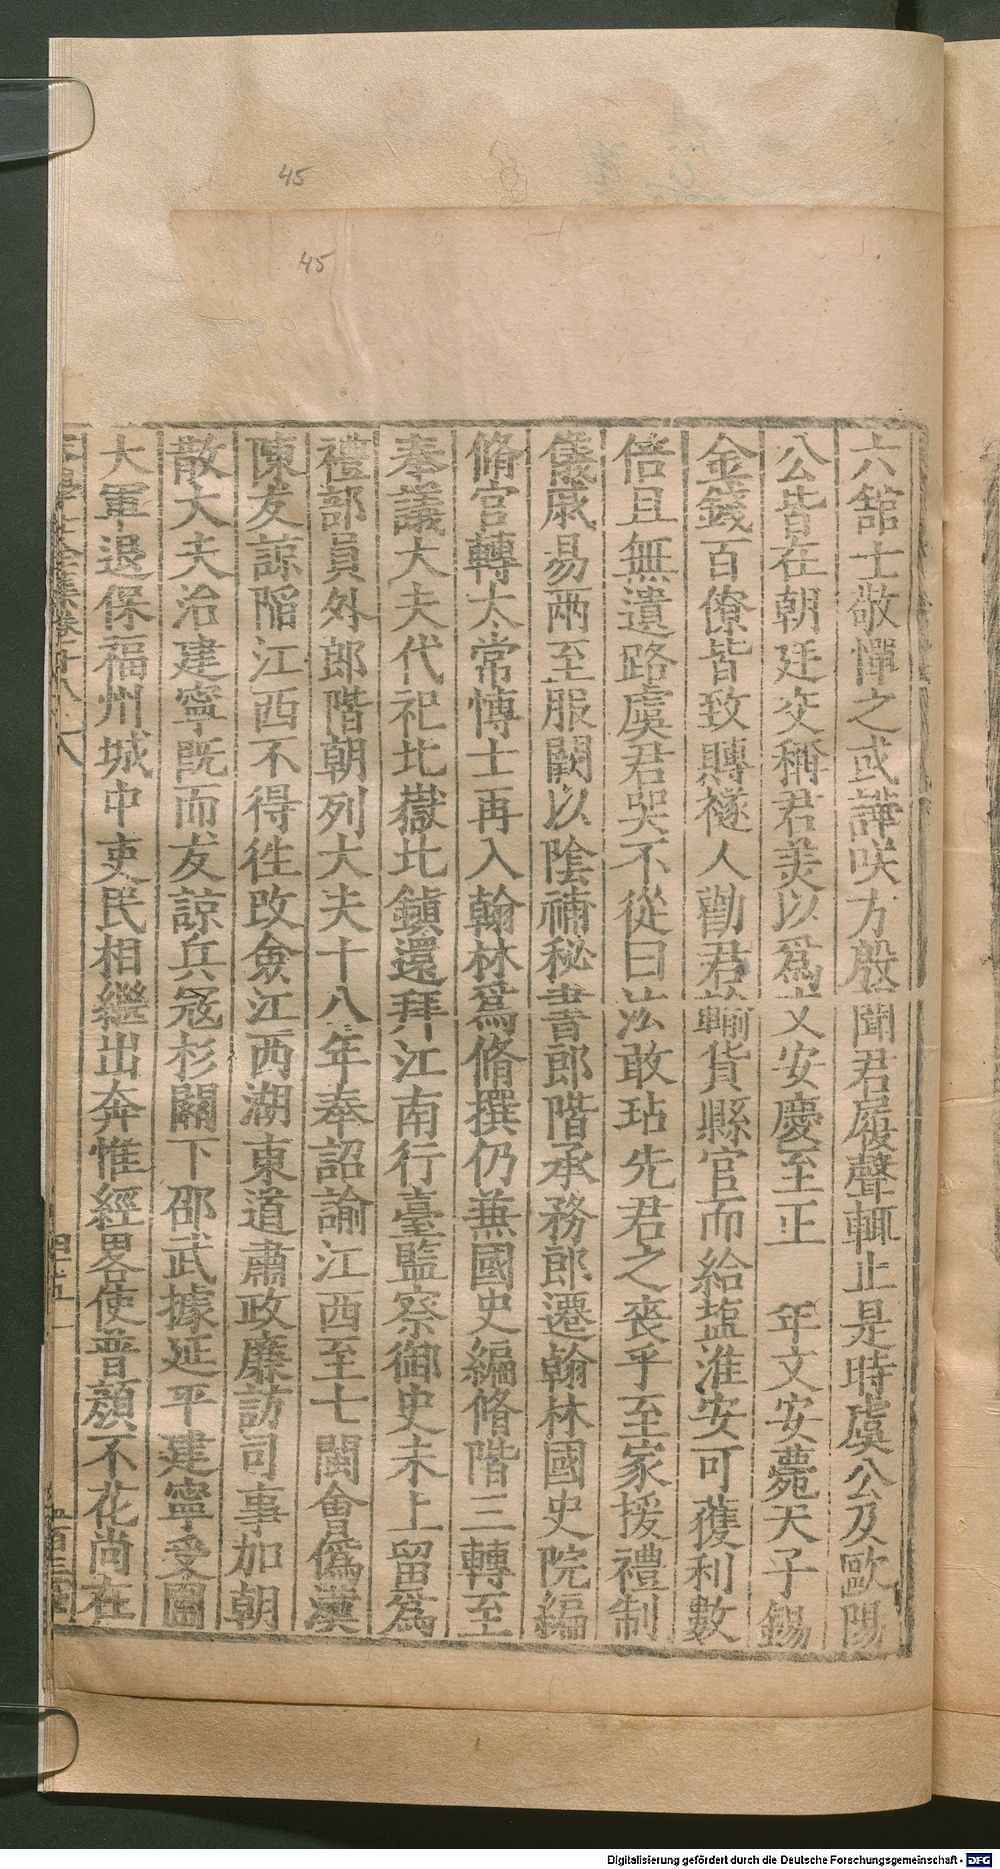 45
45
六舘士敬憚之或譁咲方殷聞君履聲輒止是時虞公及歐陽
公皆在朝廷交稱君美以爲文安慶至正　年文安薨天子錫
金錢百僚皆致賻襚人勸君輸貨縣官而給塩淮安可獲利數
倍且無遺路虞君哭不從曰汯敢玷先君之喪乎至家援禮制
儀戚易兩至服闋以陰補秘書郎階承務郎遷翰林國史院編
脩官轉太常博士再入翰林爲脩撰仍兼國史編脩階三轉至
奉議大夫代祀北嶽北鎮還拜江南行臺監察御史未上留爲
禮部員外郎階朝列大夫十八年奉詔諭江西至七閩會僞漢
陳友諒陷江西不得徃改僉江西湖東道肅政廉訪司事加朝
散大夫治建寧既而友諒兵寇杉關下邵武據延平建寧受圍
大軍退保福州城中吏民相繼出奔惟經畧使普顔不花尚在
Digitalisierung gefördert durch die Deutsche Forschungsgemeinschaft - DFG